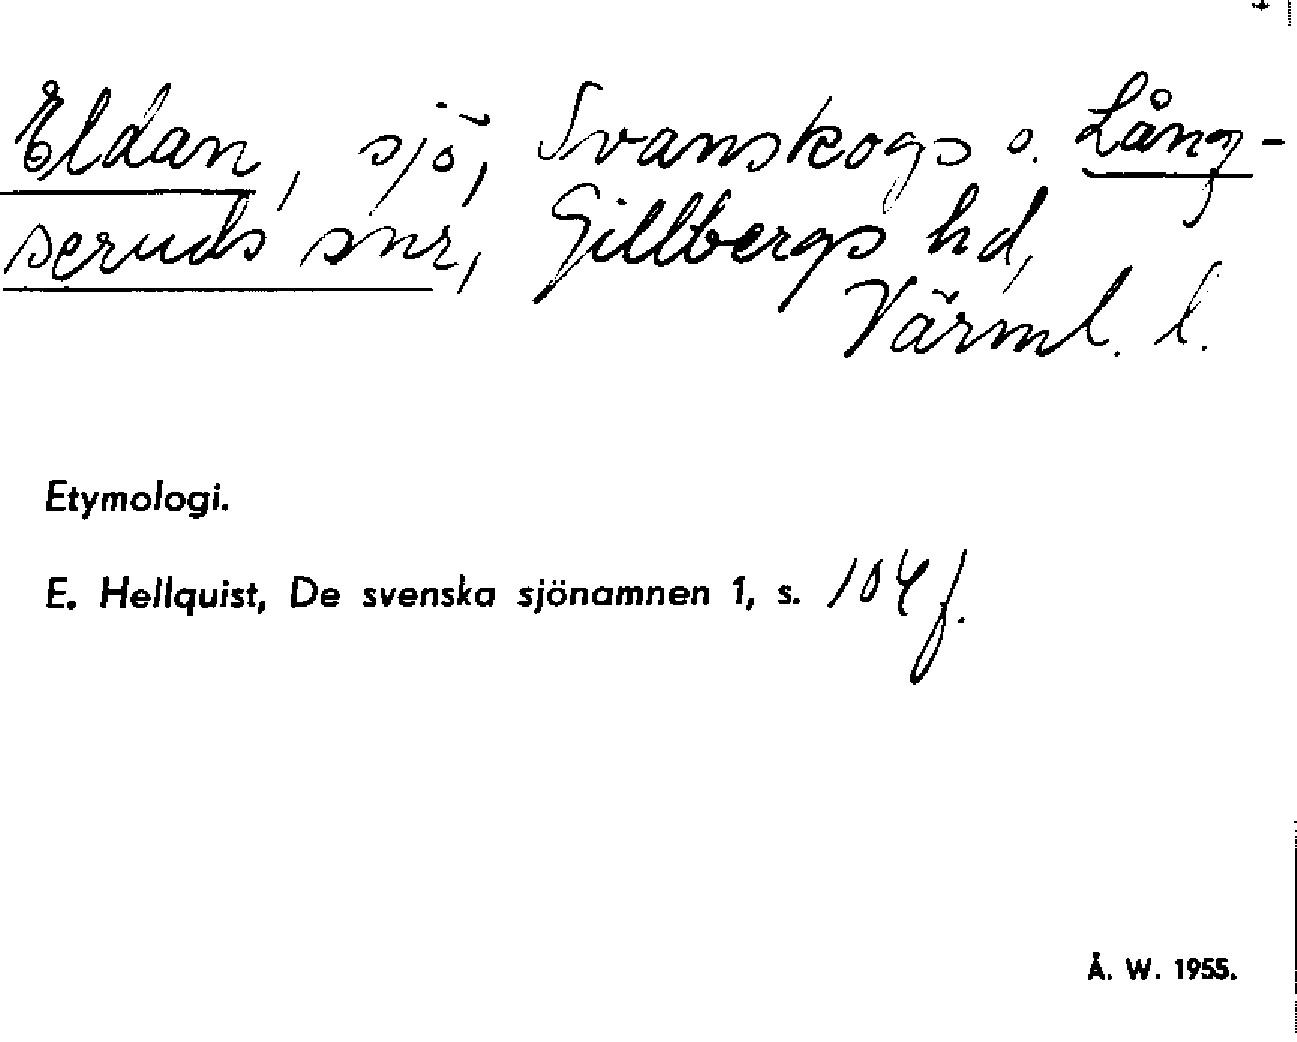 Eldan, sjö, Svanskogs o. Lång-
seruds snr, Gillbergs hd,
Värml. l.
Etymologi.
E. Hellquist, De svenska sjönamnen 1, s. 104 f.
Å. W. 1955.